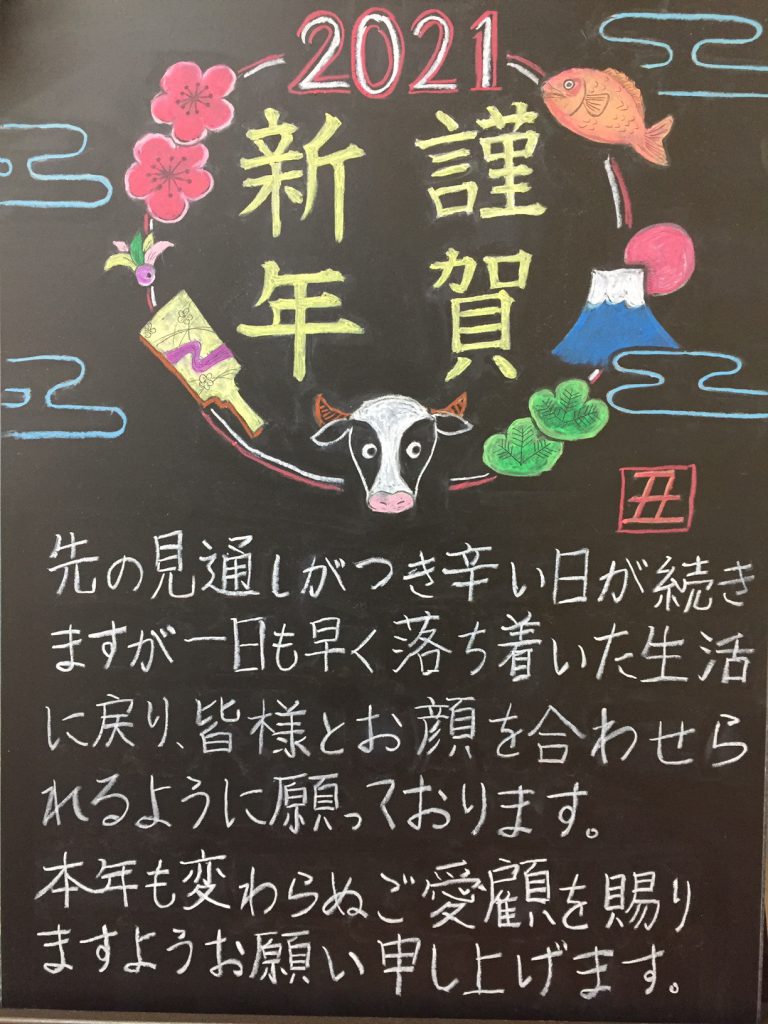 2021
謹賀
新年
丑
先の見通しがつき辛い日が続き
ますが一日も早く落ち着いた生活
に戻り、皆様とお顔を合わせら
れるように願っております。
本年も変わらぬご愛顧を賜り
ますようお願い申し上げます。